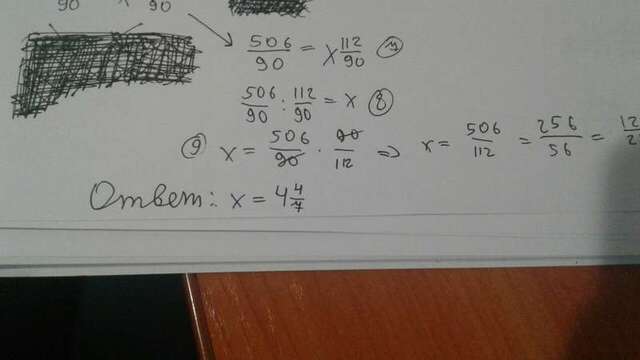 90 x 90
506/90 = x 112/90 ⑦
506/90 : 112/90 = x ⑧
⑨ x = 506/90 · 90/112 => x = 506/112 = 256/56 = 12
Ответ: x = 4 4/7